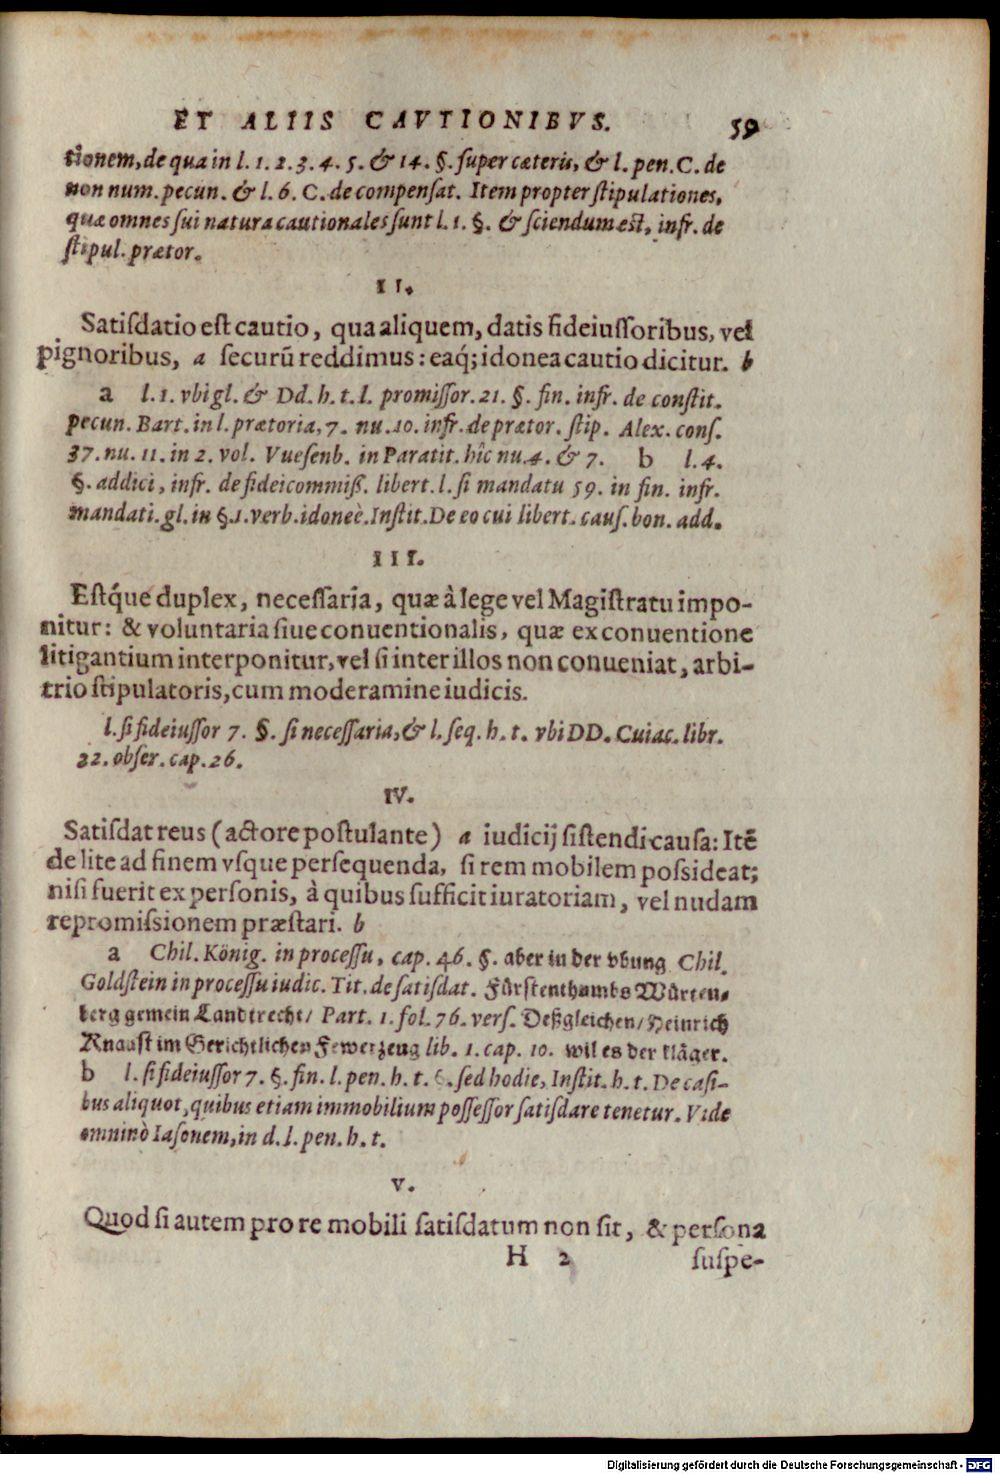 ET ALIIS CAVTIONIBVS. 59
tionem, de qua in l. 1. 2. 3. 4. 5. & 14. §. super cæteris, & l. pen. C. de
non num. pecun. & l. 6. C. de compensat. Item propter stipulationes,
quæ omnes sui natura cautionales sunt l. 1. §. & sciendum est, infr. de
stipul. prætor.
II.
Satisdatio est cautio, qua aliquem, datis fideiussoribus, vel
pignoribus, a securū reddimus: eaq́; idonea cautio dicitur. b
a l. 1. vbi gl. & Dd. h. t. l. promissor. 21. §. fin. infr. de constit.
pecun. Bart. in l. prætoria, 7. nu. 10. infr. de prætor. stip. Alex. cons.
37. nu. 11. in 2. vol. Vuesenb. in Paratit. hîc nu. 4. & 7. b l. 4.
§. addici, infr. de fideicommiß. libert. l. si mandatu 59. in fin. infr.
mandati. gl. in §. 1. verb. idoneè. Instit. De eo cui libert. caus. bon. add.
III.
Estq́ue duplex, necessaria, quæ à lege vel Magistratu impo-
nitur: & voluntaria siue conuentionalis, quæ ex conuentione
litigantium interponitur, vel si inter illos non conueniat, arbi-
trio stipulatoris, cum moderamine iudicis.
l. si fideiussor 7. §. si necessaria, & l. seq. h. t. vbi DD. Cuiac. libr.
32. obser. cap. 26.
IV.
Satisdat reus (actore postulante) a iudicij sistendi causa: Itē
de lite ad finem vsque persequenda, si rem mobilem possideat;
nisi fuerit ex personis, à quibus sufficit iuratoriam, vel nudam
repromissionem præstari. b
a Chil. König. in processu, cap. 46. §. aber in der vbung Chil.
Goldstein in processu iudic. Tit. de satisdat. Fürstenthumbs Würten-
berg gemein Landtrecht/ Part. 1. fol. 76. vers. Deßgleichen/ Heinrich
Knaust im Gerichtlichen Fewerzeug lib. 1. cap. 10. wil es der kläger.
b l. si fideiussor 7. §. fin. l. pen. h. t. §. sed hodie, Instit. h. t. De casi-
bus aliquot, quibus etiam immobilium possessor satisdare tenetur. Vide
omninò Iasonem, in d. l. pen. h. t.
V.
Quod si autem pro re mobili satisdatum non sit, & persona
H 2 suspe-
Digitalisierung gefördert durch die Deutsche Forschungsgemeinschaft - DFG